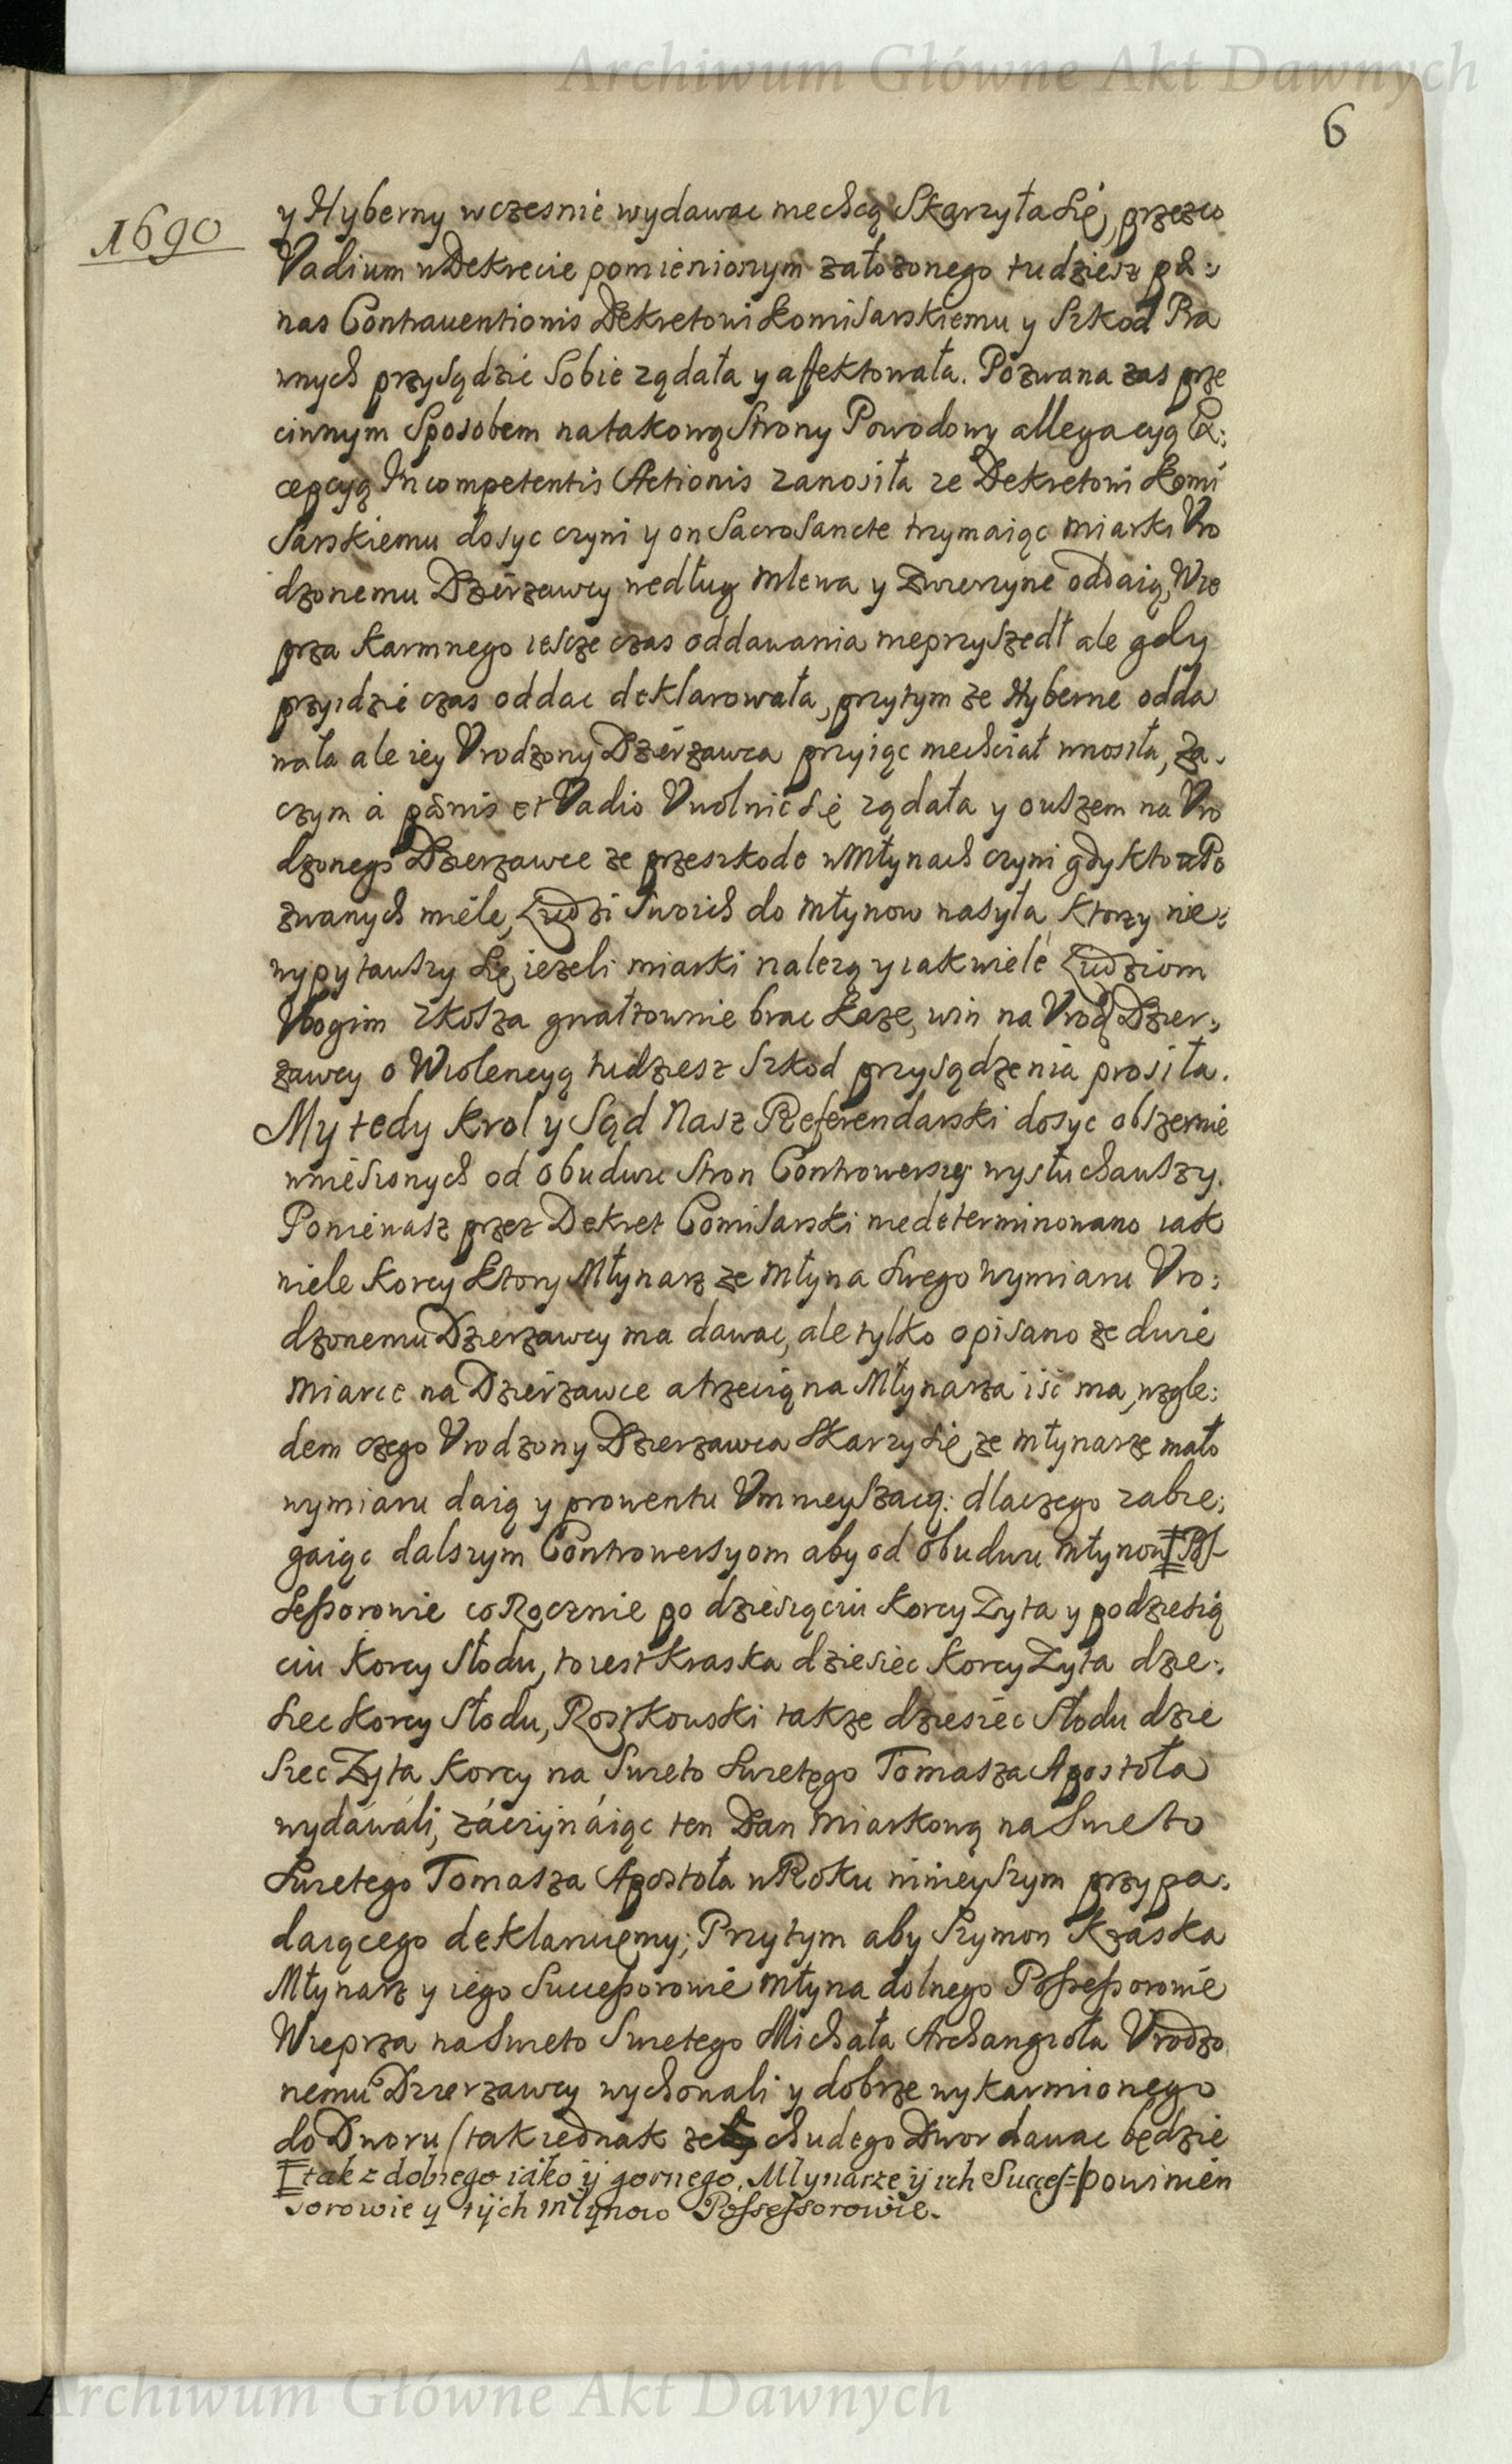 Archiwum Główne Akt Dawnych
6
1690
y Hyberny wczesnie wydawac niechcą Skarzyła się, przezco
Vadium w Dekrecie pomienionym załozonego tudziesz pæ:
nas Contrauentionis Dekretowi Komisarskiemu y Szkod Pra
wnych przysądzic Sobie ządała y affektowała. Pozwana zas prze
ciwnym Sposobem natakową Strony Powodowy allegacyą Ex:
cepcyą Incompetentis Actionis zanosiła ze Dekretowi Komi
Sarskiemu dosyc czyni y on SacroSancte trzymaiąc miarki Vro
dzonemu Dzierzawcy według mlewa y Zwierzyne oddaią, Wie
prza Karmnego iescze czas oddawania nieprzyszedł ale gdy
przyidzie czas oddac deklarowała, przytym ze Hyberne odda
wała ale iey Vrodzony Dzierzawca przyiąc niechciał wnosiła, Za:
czym á pænis et Vadio Vwolnic się ządała y owszem na Vro
dzonego Dzierzawce ze przeszkode w Młynach czyni gdy kto u Po
zwanych miele, Ludzi Swoich do Młynow nasyła, Ktorzy nie:
wypytawszy Się iezeli miarki nalezą y iakwiele Ludziom
Vbogim zKosza gwałtownie brac Kaze, win na Vrodz Dzier:
zawcy o Wiolencyą tudziesz Szkod przysądzenia prosiła.
My tedy Krol y Sąd Nasz Referendarski dosyc obszernie
wniesionych od obudwu Stron Controwersiy wysłuchawszy.
Poniewasz przez Dekret Comisarski niedeterminowano iak
wiele Korcy Ktory Młynarz ze Młyna Swego wymiaru Vro:
dzonemu Dzierzawcy ma dawac, ale tylko opisano ze dwie
Miarce na Dzierzawce a trzecią na Młynarza iśc ma, wzgle:
dem czego Vrodzony Dzierzawca Skarzy się, ze młynarze mało
wymiaru daią y prowentu Vmnieyszaią: dlaczego zabie:
gaiąc dalszym Controwersyom aby od obudwu młynow Pos-
Sessorowie co Rocznie po dziesiąciu Korcy Zyta y podziesią
ciu Korcy Słodu, to iest Kraska dziesiec Korcy Zyta dzie:
siec Korcy Słodu, Roszkowski takze dziesiec Słodu dzie
siec Zyta Korcy na Swieto Swietego Tomasza Apostoła
wydáwáli, záczynáiąc ten Dan miarkową na Swieto
Swietego Tomasza Apostoła w Roku ninieyszym przypa:
daiącego deklaruiemy; Przytym aby Szymon Kraska
Młynarz y iego Successorowie młyna dolnego Possessorowie
Wieprza na Swieto Swietego Michała Archangioła Vrodzo
nemu Dzierzawcy wychowali y dobrze wykarmionego
do Dworu (tak iednak ze chudego Dwor dawac będzie
tak z dolnego iáko y gornego. Mlynarze y ich Succes= powinien
sorowie y tych mlynow Possessorowie.
Archiwum Główne Akt Dawnych